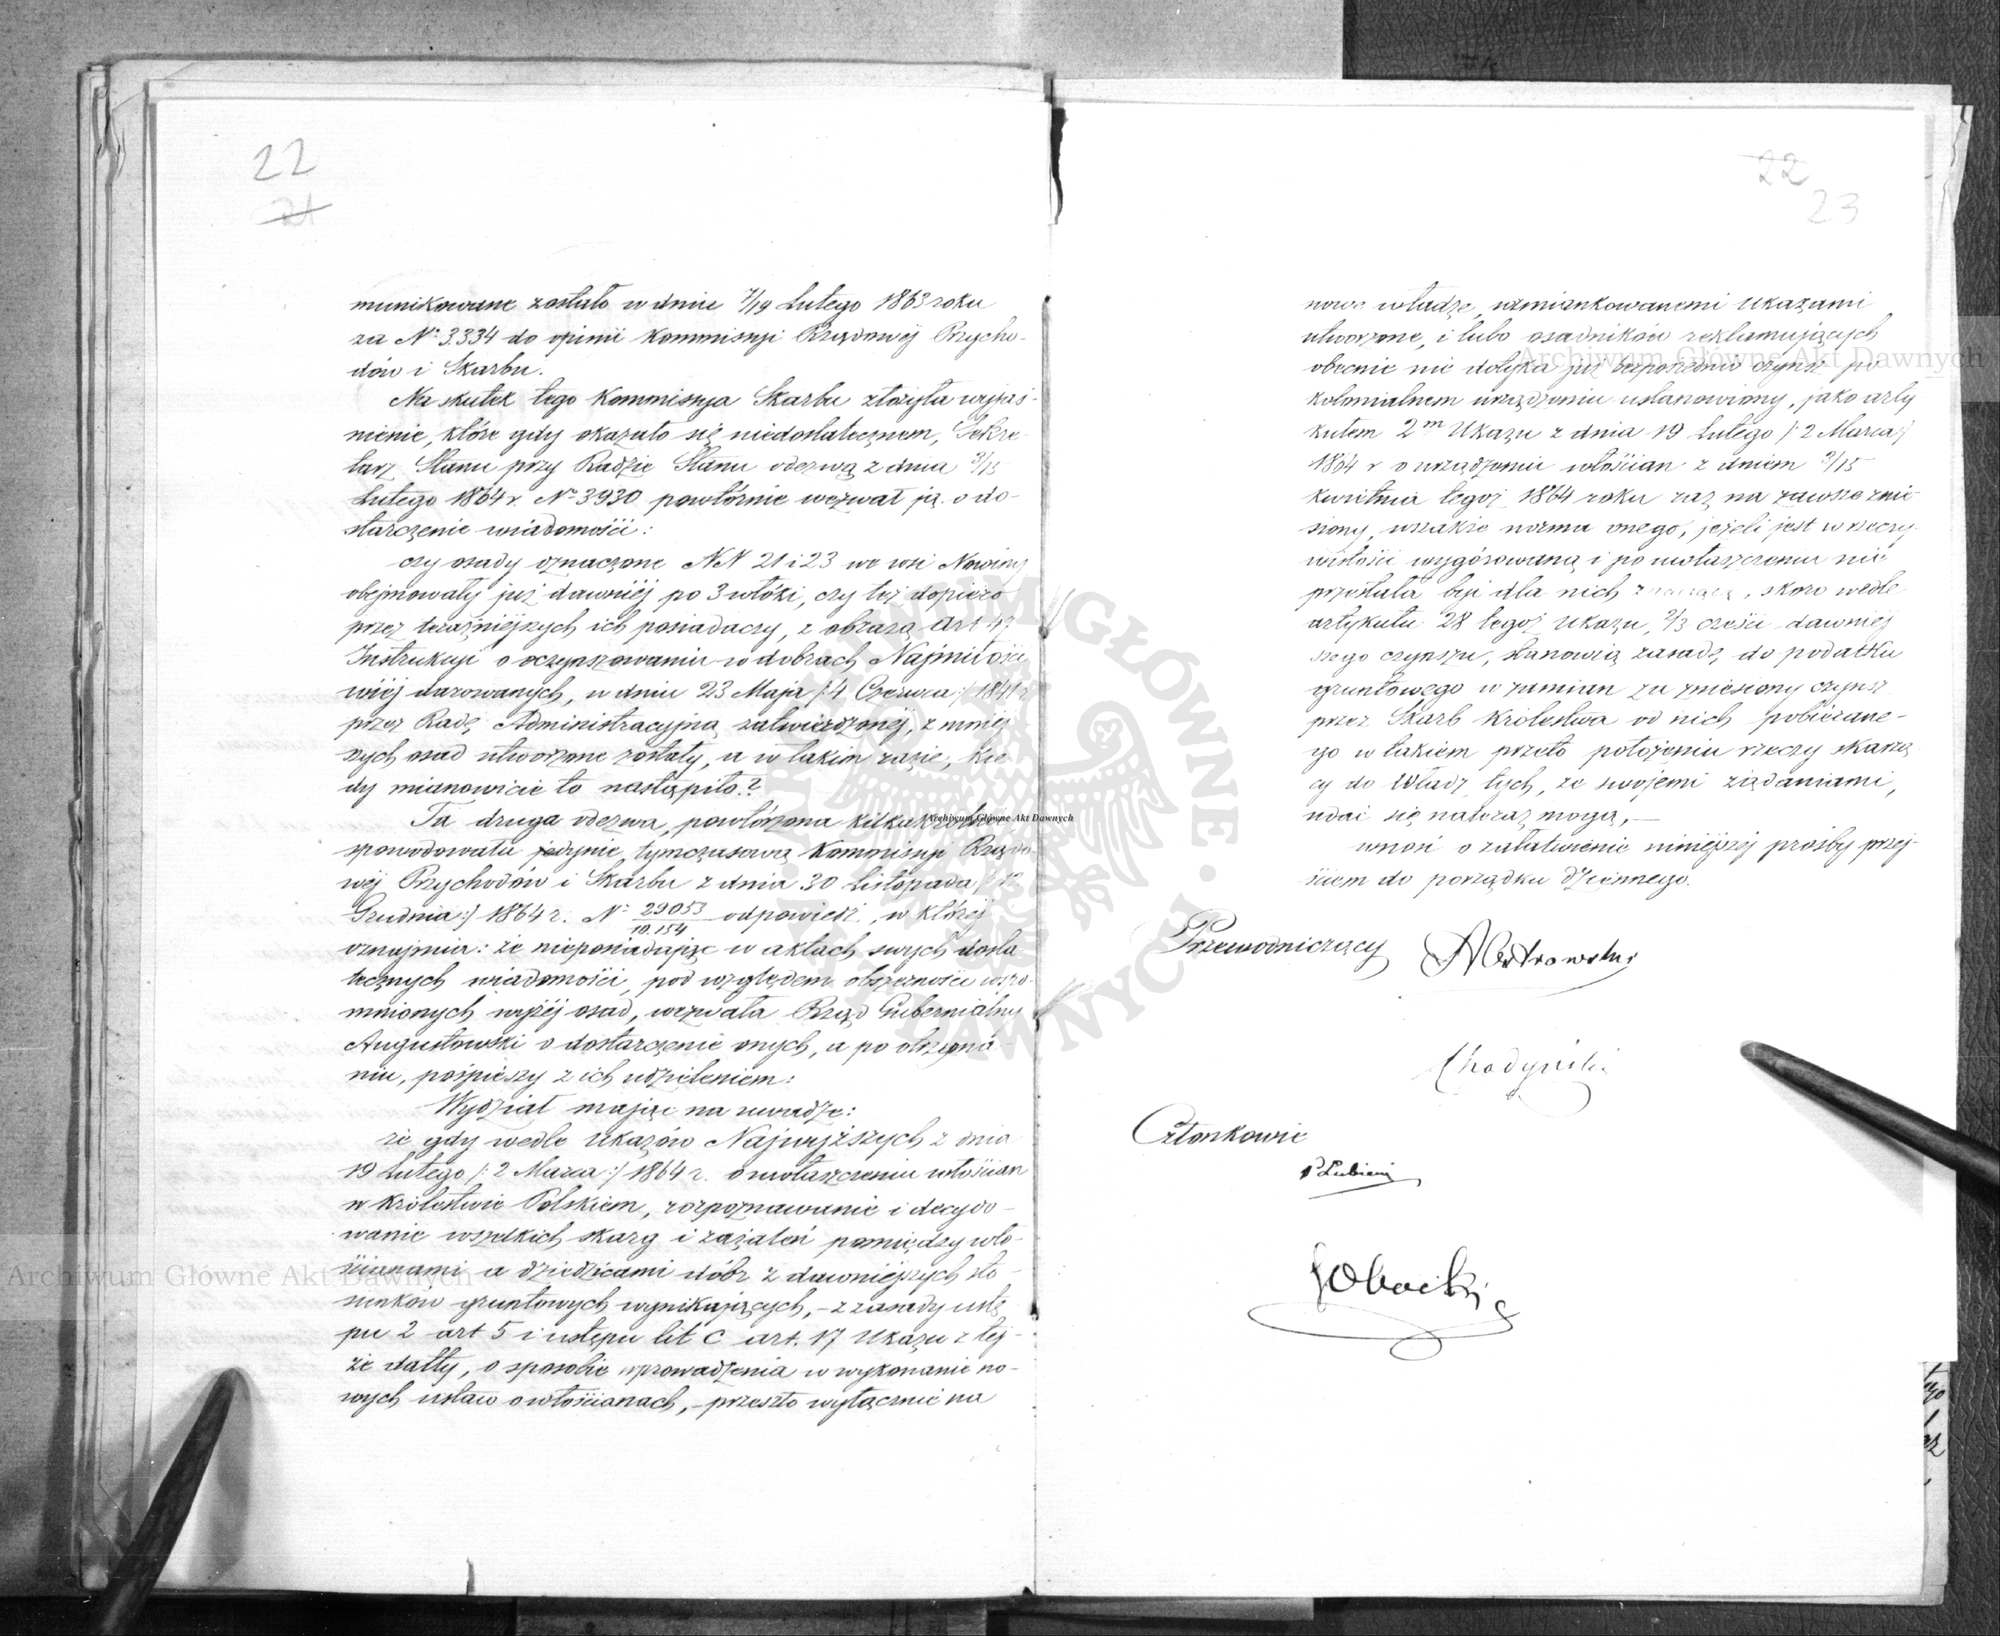 22
21
munikowane zostało w dniu 7/19 Lutego 1863 roku
za No 3334 do opinii Kommissyi Rządowéj Przycho-
dów i Skarbu.
Na skutek tego Kommissya Skarbu złożyła wyjaś-
nienie, które gdy okazało się niedostatecznem, Sekre-
tarz Stanu przy Radzie Stanu odezwą z dnia 3/15
Lutego 1864 r. No 3930 powtórnie wezwał ją o do-
starczenie wiadomości:
czy osady oznaczone NN 21 i 23 we wsi Nowiny
obejmowały już dawniéj po 3 włóki, czy też dopiéro
przez teraźniejszych ich posiadaczy, z obrazą Art 47
Instrukcyi o oczynszowaniu w dobrach Najmiłości-
wiéj darowanych, w dniu 23 Maja /:4 Czerwca:/ 1841 r
przez Radę Administracyjną zatwierdzonéj, z mniej-
szych osad utworzone zostały, a w takim razie, kie-
dy mianowicie to nastąpiło?
Ta druga odezwa, powtórzona kilkakrotnie
spowodowała jedynie tymczasową Kommissyi Rządo-
wéj Przychodów i Skarbu z dnia 30 Listopada /:12
Grudnia:/ 1864 r. No 29053/10.154 odpowiedź, w któréj
oznajmia: że nieposiadając w aktach swych dosta-
tecznych wiadomości, pod względem obszerności wspo-
mnionych wyżéj osad, wezwała Rząd Gubernialny
Augustowski o dostarczenie onych, a po otrzyma-
niu, pośpieszy z ich udzieleniem:
Wydział mając na uwadze:
że gdy wedle Ukazów Najwyższych z dnia
19 Lutego /:2 Marca:/ 1864 r. o uwłaszczeniu włościan
w Królestwie Polskiem, rozpoznawanie i decydo-
wanie wszelkich skarg i zażaleń pomiędzy wło-
ścianami a dziedzicami dóbr z dawniejszych sto-
sunków gruntowych wynikających, - z zasady ustę-
pu 2 art 5 i ustępu lit C art. 17 Ukazu z tej-
że datty, o sposobie wprowadzenia w wykonanie no-
wych ustaw o włościanach, - przeszło wyłącznie na
22
23
nowe władze, wzmiankowanemi Ukazami
utworzone, i lubo osadników reklamujących
obecnie nie dotyka już bezpośrednio czynsz po
kolonialnem urządzeniu ustanowiony, jako arty-
kułem 2m Ukazu z dnia 19 Lutego /:2 Marca:/
1864 r o urządzeniu włościan z dniem 3/15
kwietnia tegoż 1864 roku raz na zawsze znie-
siony, wszakże norma onego, jeżeli jest w rzeczy-
wistości wygórowaną i po uwłaszczeniu nie
przestała być dla nich , skoro wedle
artykułu 28 tegoż Ukazu, 2/3 części dawniej-
szego czynszu, stanowią zasadę do podatku
gruntowego w zamian za zniesiony czynsz
przez Skarb Królestwa od nich pobierane-
go w takiem przeto położeniu rzeczy skarżą-
cy do Władz tych, ze swojemi żądaniami,
udać się natenczas mogą, —
wnosi o załatwienie niniejszéj prośby przej-
ściem do porządku dziennego.
Przewodniczący AOstrowski
Chodyński
Członkowie
P Lubieński
Archiwum Główne Akt Dawnych
Archiwum Główne Akt Dawnych
Archiwum Główne Akt Dawnych
ARCHIWUM GŁÓWNE AKT DAWNYCH